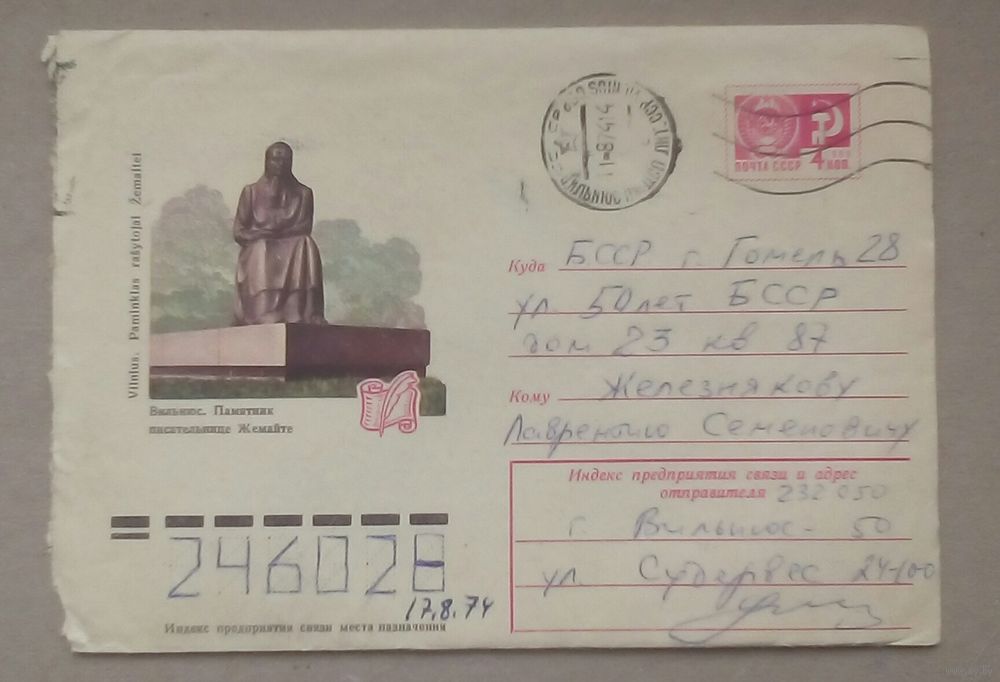 Vilnius. Paminklas rašytojai Žemaitei
Вильнюс. Памятник
писательнице Жемайте
ПОЧТА СССР 4 КОП
Куда БССР г. Гомель 28
ул. 50 лет БССР
дом 23 кв 87
Кому Железнякову
Лаврентию Семеновичу
Индекс предприятия связи и адрес
отправителя 232050
г. Вильнюс - 50
ул. Судервес 24-100
246028
17.8.74
Индекс предприятия связи места назначения